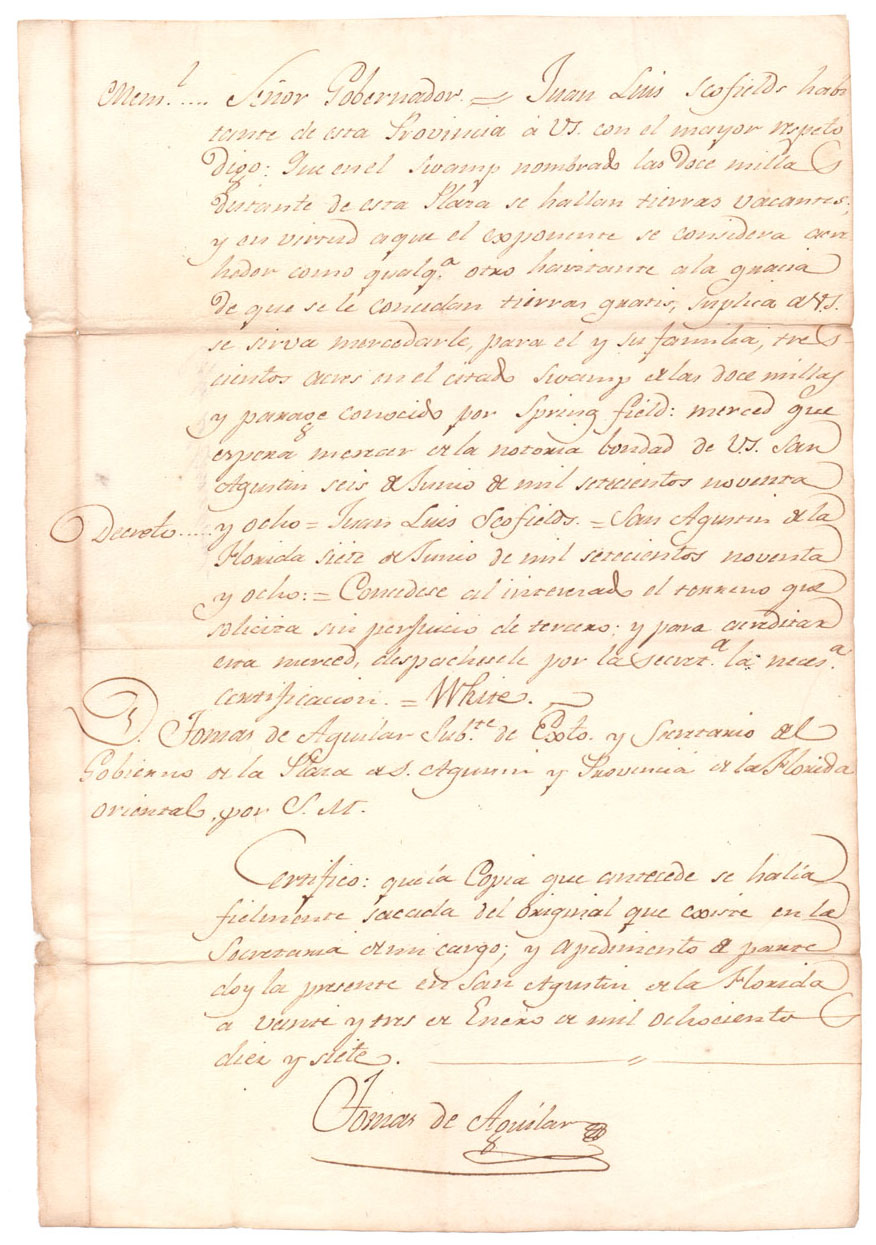 Mem.l .... Señor Gobernador = Juan Luis Scofields habi
tante de esta Provincia á VS. con el mayor respeto
Digo: Que en el Swamp nombrado las Doce millas
Distante de esta Plaza se hallan tierras vacantes;
y en virtud a que el exponente se considera acre
hedor como qualq.a otro havitante a la gracia
de que se le concedan tierras gratis, suplica a VS.
se sirva mercedarle, para el y su familia, tres-
cientos acres en el citado Swamp de las doce millas
y parage conocido por Spring field: merced que
espera merecer de la notoria bondad de VS. San
Agustin seis de Junio de mil setecientos noventa
Decreto..... y ocho = Juan Luis Scofields. = San Agustin de la
Florida siete de Junio de mil setecientos noventa
y ocho: = Concedese al interesado el terreno que
solicita sin perjuicio de tercero; y para acreditar
esta merced, despachesele por la Secret.a la neces.a
certificacion. = White.
D. Tomas de Aguilar Sub.te de Exto. y Secretario del
Gobierno de la Plaza de S. Agustin y Provincia de la Florida
oriental, por S. M.
Certifico: que la Copia que antecede se halla
fielmente sacada del original que existe en la
Secretaria de mi cargo; y a pedimento de parte
doy la presente en San Agustin de la Florida
a veinte y tres de Enero de mil ochocientos
diez y siete.
Tomas de Aguilar